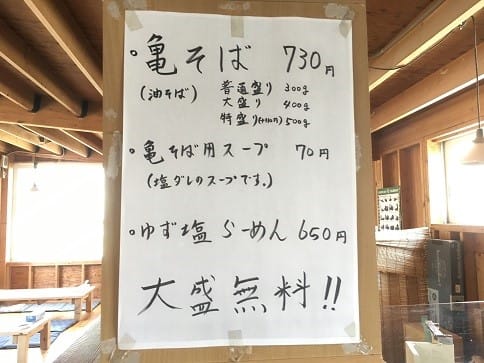 ・亀そば 730円
(油そば) 普通盛り 300g
大盛り 400g
特盛り 500g
・亀そば用スープ 70円
(塩ダレのスープです。)
・ゆず塩らーめん 650円
大盛無料!!